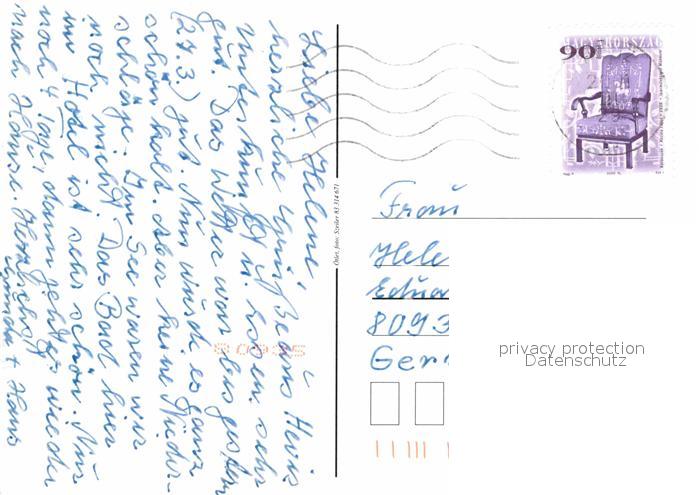 Liebe Helene!
herzliche Grüße aus Hevis
Unterkunft u. Essen sehr
gut. Das Wetter war bis gestern
(27.3.) gut. Nun wurde es ganz
schön kalt. Aber keine Nieder-
schläge. Im See waren wir
noch nicht. Das Bad hier
im Hotel ist sehr schön. Nur
noch 4 Tage, dann geht es wieder
nach Hause. Herzlichst
+ Hans
Öhlet, foto: Szeller 83 314 671
90
MAGYARORSZÁG
Frau
Hele
Edua
8093
Ger
privacy protection
Datenschutz